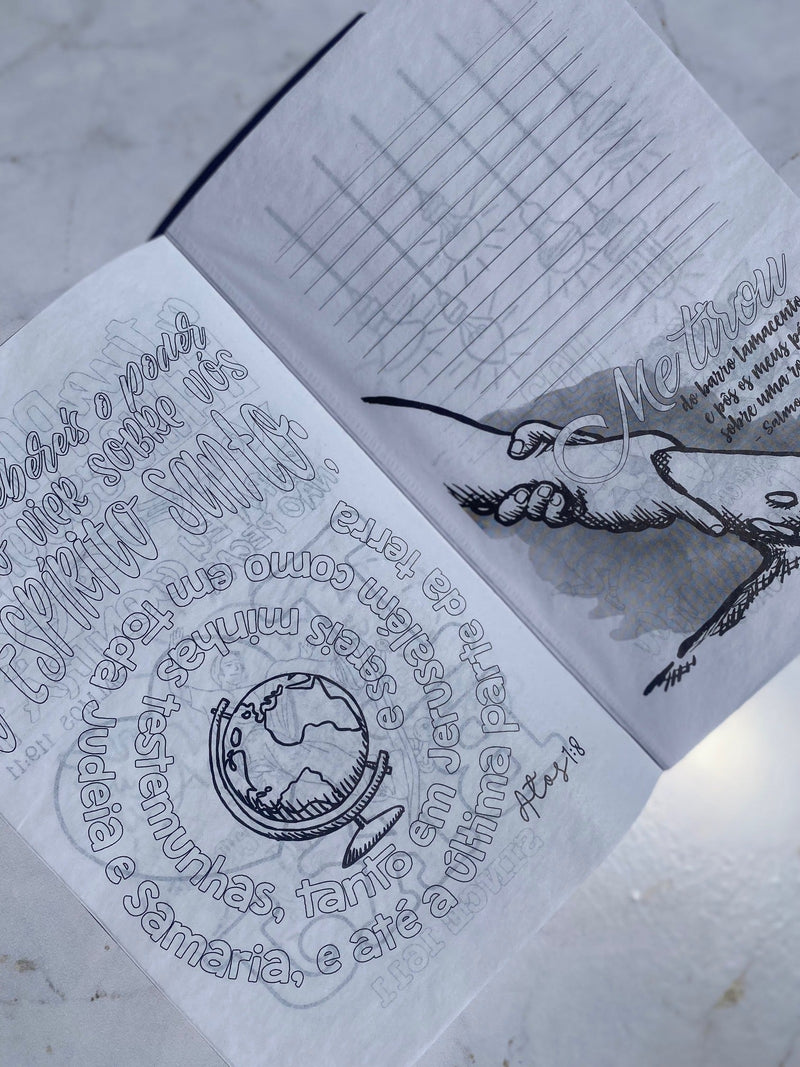 o poder
vier sobre vós
o ESPÍRITO SANTO,
e sereis minhas testemunhas, tanto em Jerusalém como em toda Judeia e Samaria, e até a última parte da terra
Atos 1:8
Me tirou
do barro lamacento
e pôs os meus
sobre uma
- Salmo